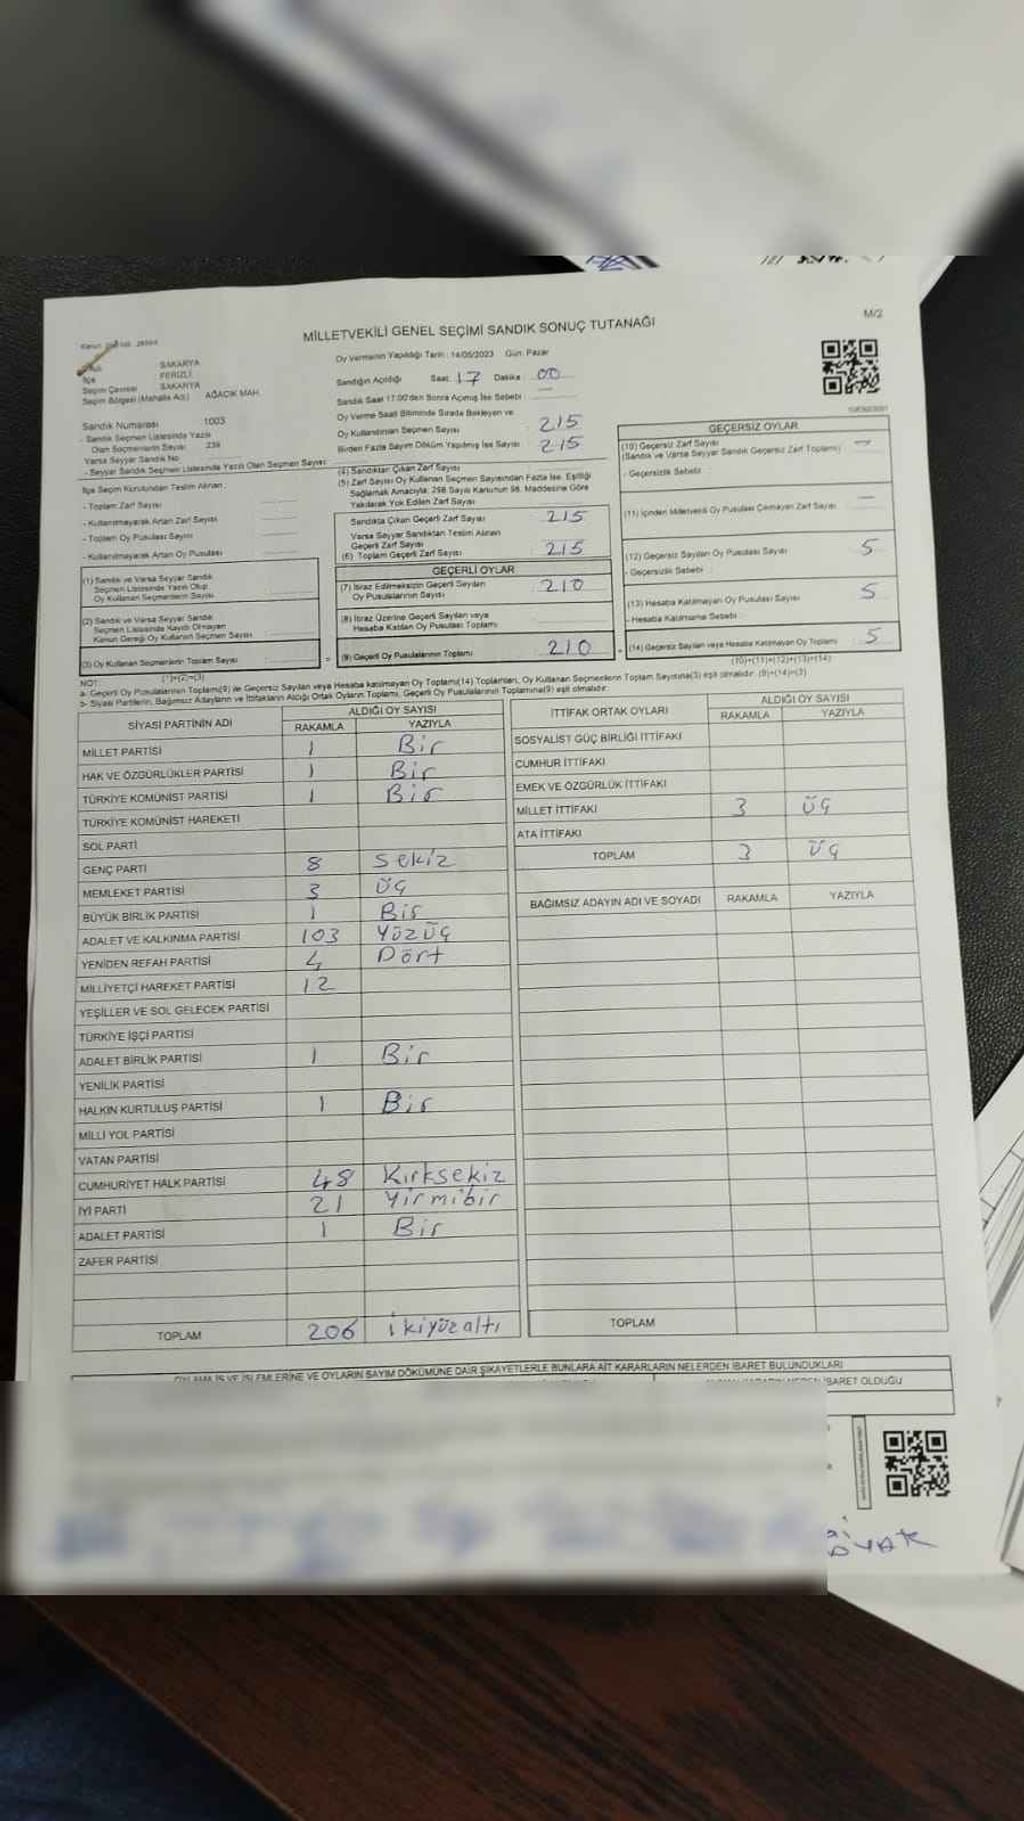 MİLLETVEKİLİ GENEL SEÇİMİ SANDIK SONUÇ TUTANAĞI
M/2
İlçe
Seçim Çevresi
Seçim Bölgesi (Mahalle Adı)
SAKARYA
FERİZLİ
SAKARYA
AĞACIK MAH.
Sandık Numarası 1003
- Sandık Seçmen Listesinde Yazılı
Olan Seçmenlerin Sayısı 239
Varsa Seyyar Sandık No
- Seyyar Sandık Seçmen Listesinde Yazılı Olan Seçmen Sayısı
Oy Vermenin Yapıldığı Tarih : 14/05/2023 Gün: Pazar
Sandığın Açıldığı Saat 17 Dakika 00
Sandık Saat 17.00'den Sonra Açılmış İse Sebebi
Oy Verme Saati Bitiminde Sırada Bekleyen ve
Oy Kullandırılan Seçmen Sayısı 215
Birden Fazla Sayım Döküm Yapılmış İse Sayısı 215
İlçe Seçim Kurulundan Teslim Alınan :
- Toplam Zarf Sayısı
- Kullanılmayarak Artan Zarf Sayısı
- Toplam Oy Pusulası Sayısı
- Kullanılmayarak Artan Oy Pusulası
(1) Sandık ve Varsa Seyyar Sandık
Seçmen Listesinde Yazılı Olup
Oy Kullanan Seçmenlerin Sayısı
(2) Sandık ve Varsa Seyyar Sandık
Seçmen Listesinde Kayıtlı Olmayan
Kanun Gereği Oy Kullanan Seçmen Sayısı
(3) Oy Kullanan Seçmenlerin Toplam Sayısı
(1)+(2)=(3)
(4) Sandıktan Çıkan Zarf Sayısı
(5) Zarf Sayısı Oy Kullanan Seçmen Sayısından Fazla İse, Eşitliği
Sağlamak Amacıyla; 298 Sayılı Kanunun 98. Maddesine Göre
Yakılarak Yok Edilen Zarf Sayısı
Sandıkta Çıkan Geçerli Zarf Sayısı 215
Varsa Seyyar Sandıktan Teslim Alınan
Geçerli Zarf Sayısı
(6) Toplam Geçerli Zarf Sayısı 215
GEÇERLİ OYLAR
(7) İtiraz Edilmeksizin Geçerli Sayılan
Oy Pusulalarının Sayısı 210
(8) İtiraz Üzerine Geçerli Sayılan veya
Hesaba Katılan Oy Pusulası Toplamı
(9) Geçerli Oy Pusulalarının Toplamı 210
GEÇERSİZ OYLAR
(10) Geçersiz Zarf Sayısı
(Sandık ve Varsa Seyyar Sandık Geçersiz Zarf Toplamı)
- Geçersizlik Sebebi
(11) İçinden Milletvekili Oy Pusulası Çıkmayan Zarf Sayısı
(12) Geçersiz Sayılan Oy Pusulası Sayısı 5
- Geçersizlik Sebebi
(13) Hesaba Katılmayan Oy Pusulası Sayısı 5
- Hesaba Katılmama Sebebi
(14) Geçersiz Sayılan veya Hesaba Katılmayan Oy Toplamı 5
(10)+(11)+(12)+(13)=(14)
NOT:
a- Geçerli Oy Pusulalarının Toplamı(9) ile Geçersiz Sayılan veya Hesaba Katılmayan Oy Toplamı(14) Toplamları, Oy Kullanan Seçmenlerin Toplam Sayısına(3) eşit olmalıdır. (9)+(14)=(3)
b- Siyasi Partilerin, Bağımsız Adayların ve İttifakların Aldığı Ortak Oyların Toplamı, Geçerli Oy Pusulalarının Toplamına(9) eşit olmalıdır.
SİYASİ PARTİNİN ADI ALDIĞI OY SAYISI
RAKAMLA YAZIYLA
MİLLET PARTİSİ 1 Bir
HAK VE ÖZGÜRLÜKLER PARTİSİ 1 Bir
TÜRKİYE KOMÜNİST PARTİSİ 1 Bir
TÜRKİYE KOMÜNİST HAREKETİ
SOL PARTİ
GENÇ PARTİ 8 Sekiz
MEMLEKET PARTİSİ 3 Üç
BÜYÜK BİRLİK PARTİSİ 1 Bir
ADALET VE KALKINMA PARTİSİ 103 Yüzüç
YENİDEN REFAH PARTİSİ 4 Dört
MİLLİYETÇİ HAREKET PARTİSİ 12
YEŞİLLER VE SOL GELECEK PARTİSİ
TÜRKİYE İŞÇİ PARTİSİ
ADALET BİRLİK PARTİSİ 1 Bir
YENİLİK PARTİSİ
HALKIN KURTULUŞ PARTİSİ 1 Bir
MİLLİ YOL PARTİSİ
VATAN PARTİSİ
CUMHURİYET HALK PARTİSİ 48 Kırksekiz
İYİ PARTİ 21 Yirmibir
ADALET PARTİSİ 1 Bir
ZAFER PARTİSİ
TOPLAM 206 ikiyüzaltı
İTTİFAK ORTAK OYLARI ALDIĞI OY SAYISI
RAKAMLA YAZIYLA
SOSYALİST GÜÇ BİRLİĞİ İTTİFAKI
CUMHUR İTTİFAKI
EMEK VE ÖZGÜRLÜK İTTİFAKI
MİLLET İTTİFAKI 3 ÜÇ
ATA İTTİFAKI
TOPLAM 3 ÜÇ
BAĞIMSIZ ADAYIN ADI VE SOYADI RAKAMLA YAZIYLA
TOPLAM
OYLAMA İŞ VE İŞLEMLERİNE VE OYLARIN SAYIM DÖKÜMÜNE DAİR ŞİKAYETLERLE BUNLARA AİT KARARLARIN NELERDEN İBARET BULUNDUKLARI
İBARET OLDUĞU